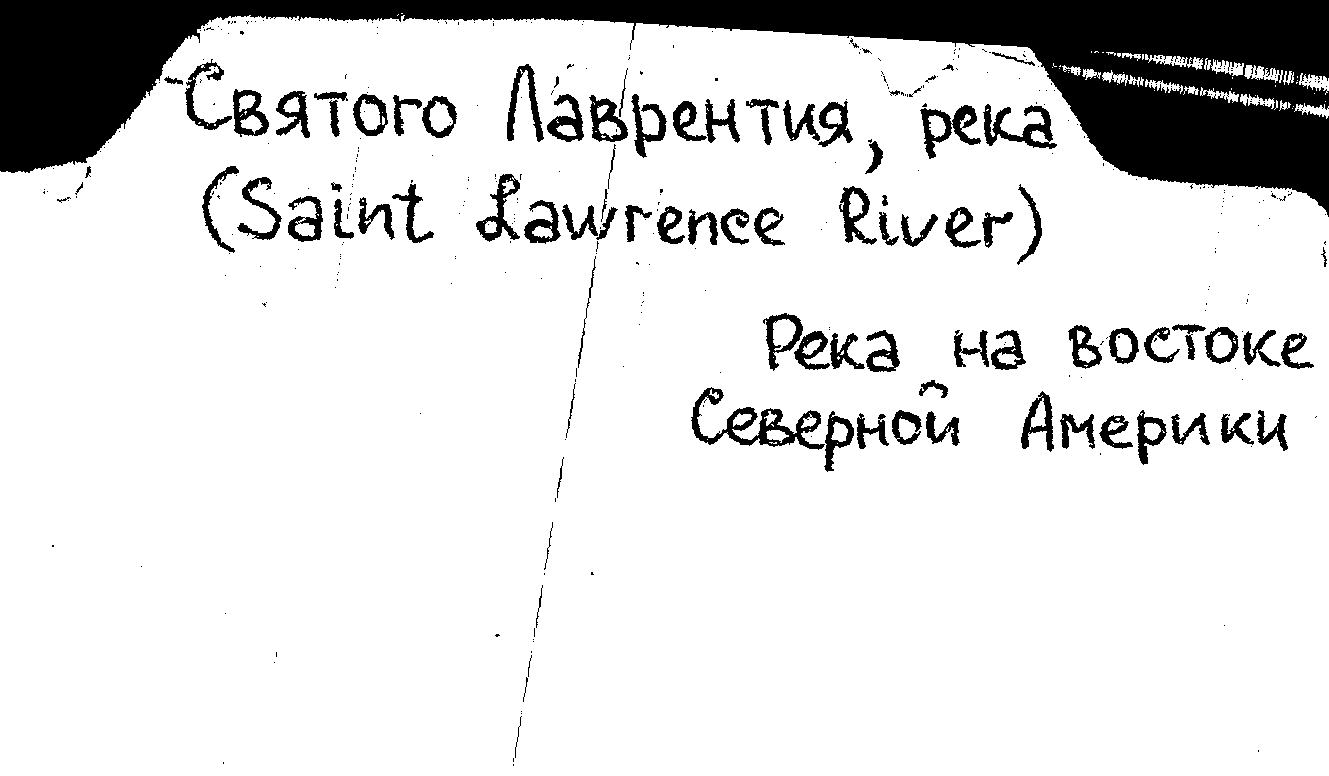 Святого Лаврентия, река
(Saint Lawrence River)
Река на востоке
Северной Америки